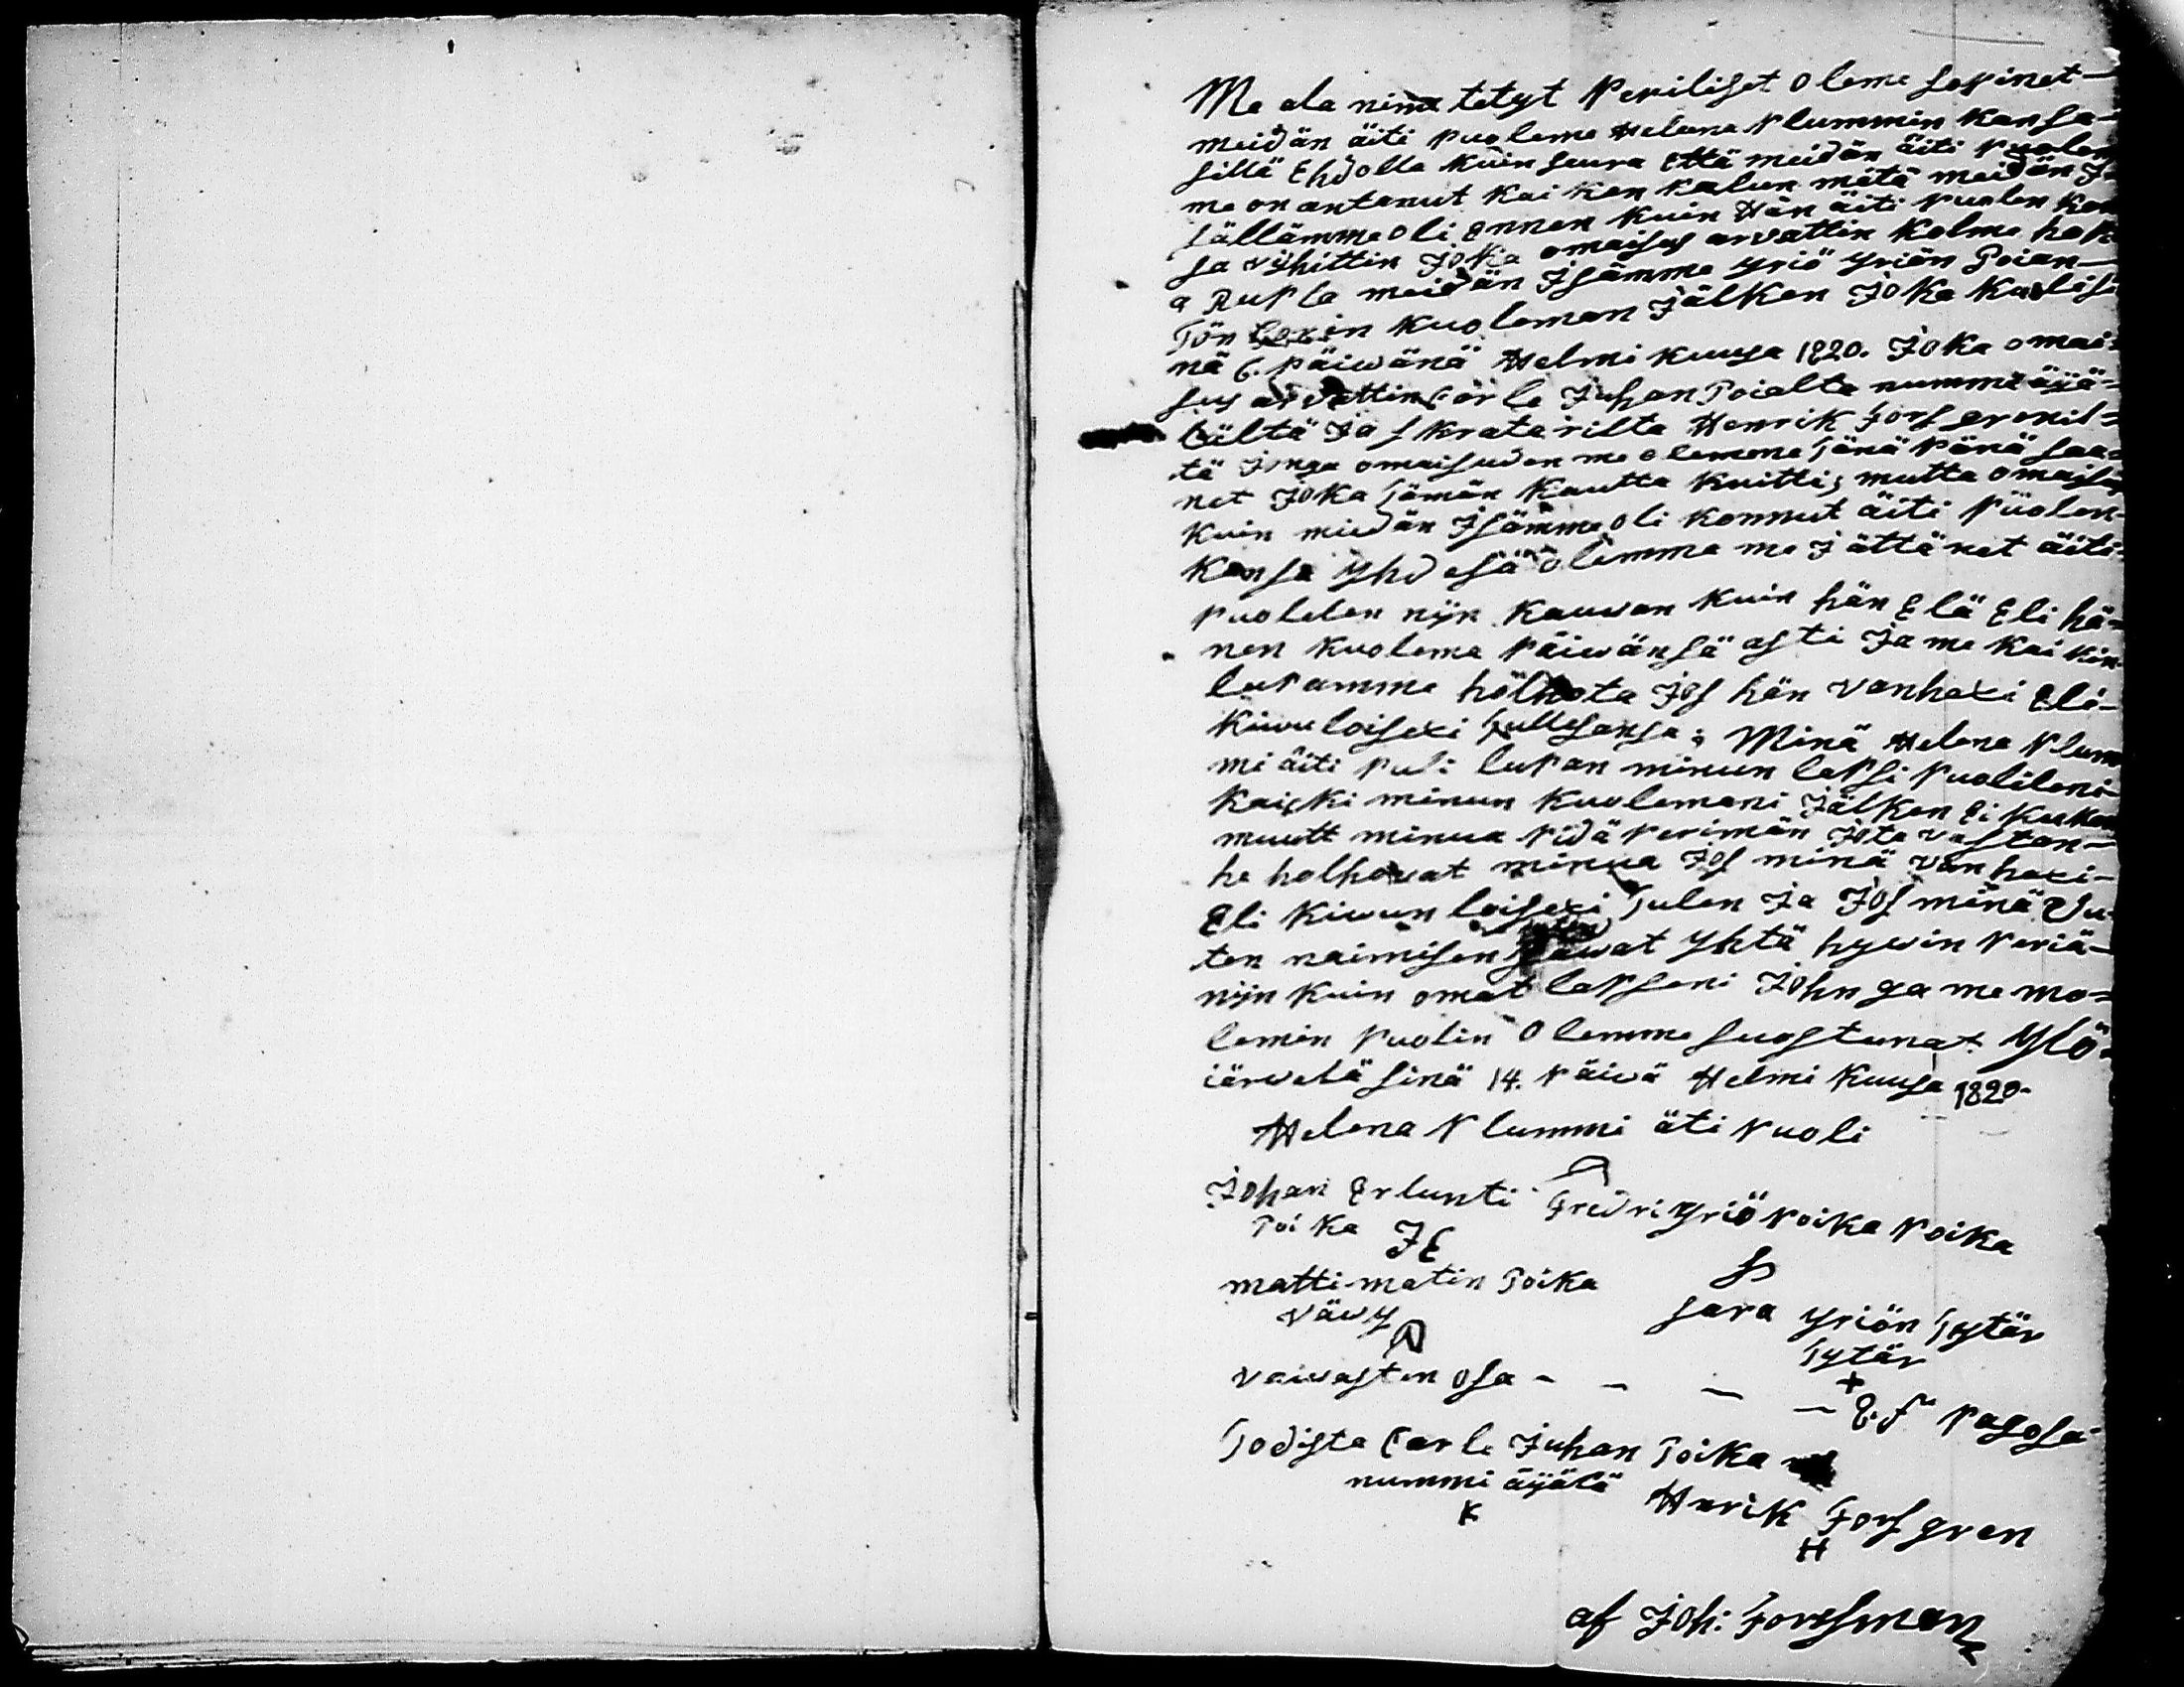 Me ala nima tetyt Periliset Oleme sopinet-
meidän äiti puoleme Helena Plummin Kansa-
sillä Ehdolla Kuin seura Että meidän äiti Puolem
me on antanut Kai ken kalun mötä meidän Jsä
sällämme Oli Ennen Kuin Hän äiti Puolen Kan
sa vijhittin Joka omaisus arvattin Kolme hah
a Rupla meidän Jsämme yriö yriön Poian-
Tön in Kuoleman Jälken Joka Kuolisi
nä 6. Päiwänä Helmi kuusa 1820. Joka omai=
sus arvattin Carle Juhan Poialta nummi äijä=
lältä Ja skratarilta Henrik Forsgrenil=
tä Jonga omaisuden me olemme Tänä Pänä saa=
net Joka Tämän Kautta Kuitti; mutta omaisus
Kuin miedän Jsämme Oli Konnut äiti Püolen-
Kansa Yhdesä Olemma me Jättänet äiti-
Puolelen nijn Kauwan Kuin hän Elä Eli hä=
nen Kuolema Päiwänsä asti Ja me Kai kin
lupamme hölhota Jos hän vanhaxi Eli-
Kiwuloisexi Tullesansa; Minä Helena Plum
mi äiti Puli lupan minun lapsi Puolileni-
Kaicki minun Kuolemani Jälken Ei Kuken
muutt minua Pidä Perimän Jota vastan-
he holhowat minua Jos minä vanhaxi-
Eli Kiwun loisexi Tulen Ja Jos minä Uu-
ten naimisen sawat Yhtä hywin Periä-
nijn Kuin omat lapseni Johnga me mo=
lemin Puolin Olemme suostunat Ylö=
iärwelä sinä 14. Päiwä Helmi Kuusa 1820-
Helena Plummi äti Puoli
Johan Erlunti Fredri Yriö Poika Poika
Poika JE
matti matin Poika
väwy
Sara Yriön Tytär
Tytär
+
vaiwasten Osa - - - - E.f Pagosa
Todista Carle Juhan Poika
nummi äijälä
K
Hnrik Forsgren
H
af Joh: Forssman